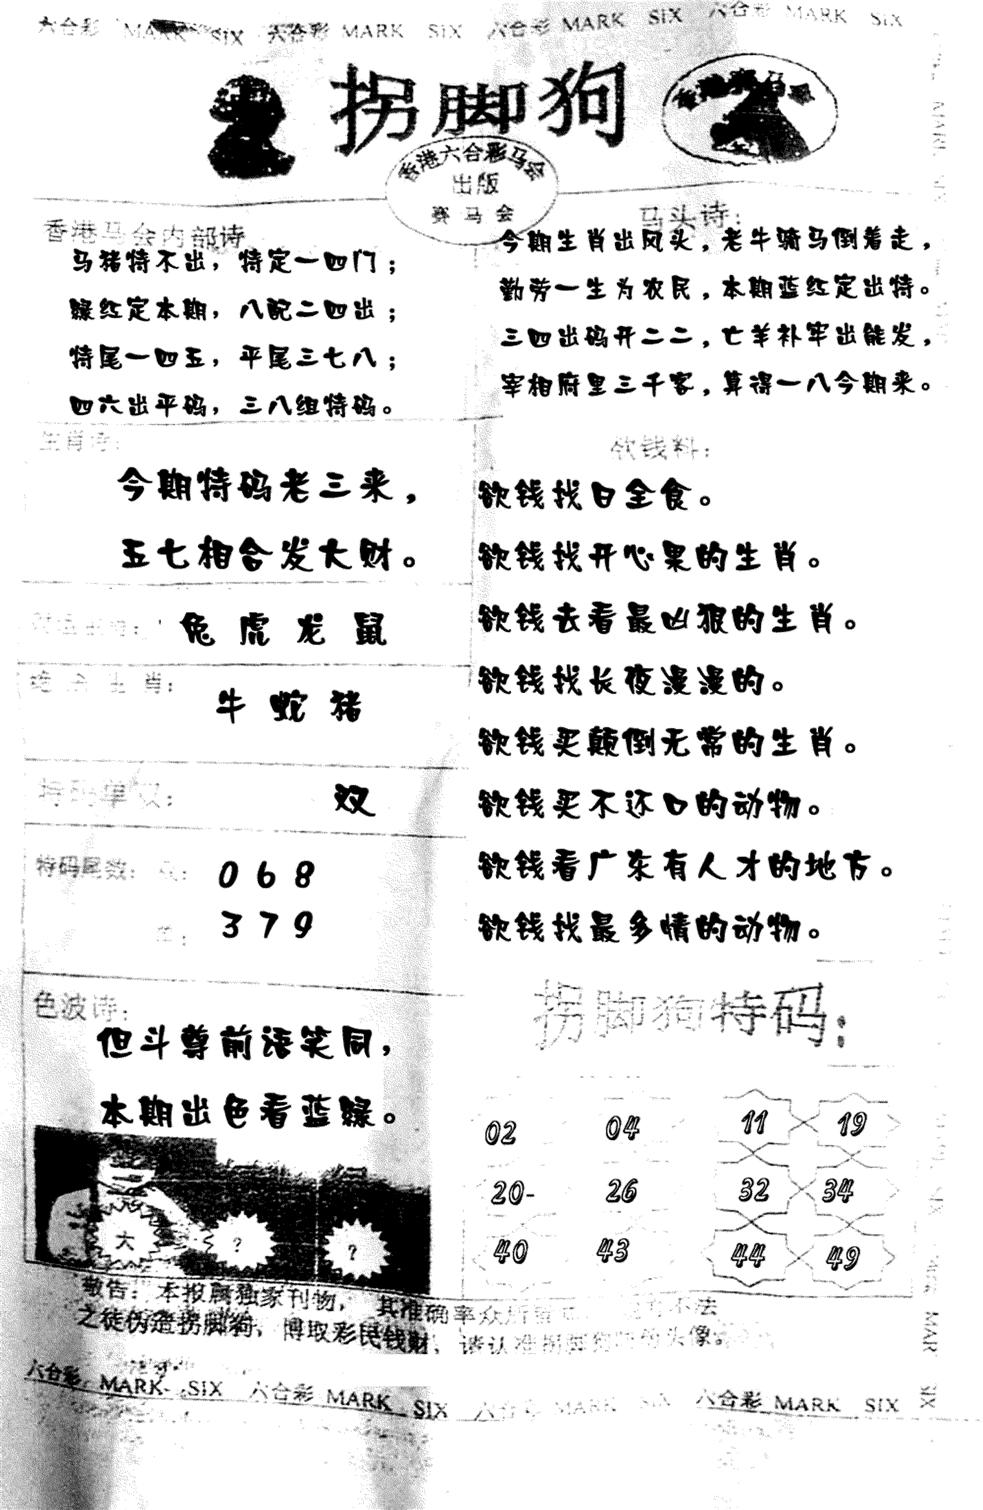 六合彩 MARK SIX 六合彩 MARK SIX 六合彩 MARK SIX 六合彩 MARK SIX
拐脚狗
香港赛马会
香港六合彩马会
出版
赛马会
香港马会内部诗
马猪特不出，特定一四门；
绿红定本期，八配二四出；
特尾一四五，平尾三七八；
四六出平码，三八组特码。
马头诗：
今期生肖出风头，老牛骑马倒着走，
勤劳一生为农民，本期蓝红定出特。
三四出码开二二，亡羊补牢出能发，
宰相府里三千客，算得一八今期来。
生肖诗：
今期特码老三来，
五七相合发大财。
兔 虎 龙 鼠
绝杀生肖：
牛 蛇 猪
特码单双：
双
特码尾数：双：
0 6 8
单：
3 7 9
色波诗：
但斗尊前语笑同，
本期出色看蓝绿。
大 ？ ？
欲钱料：
欲钱找日全食。
欲钱找开心果的生肖。
欲钱去看最凶狠的生肖。
欲钱找长夜漫漫的。
欲钱买颠倒无常的生肖。
欲钱买不还口的动物。
欲钱看广东有人才的地方。
欲钱找最多情的动物。
拐脚狗特码：
02 04 11 19
20- 26 32 34
40 43 44 49
敬告：本报属独家刊物，其准确率众所 不法
之徒伪造拐脚狗，博取彩民钱财，请认准拐脚狗 头像。
六合彩 MARK SIX 六合彩 MARK SIX 六合彩 MARK SIX 六合彩 MARK SIX